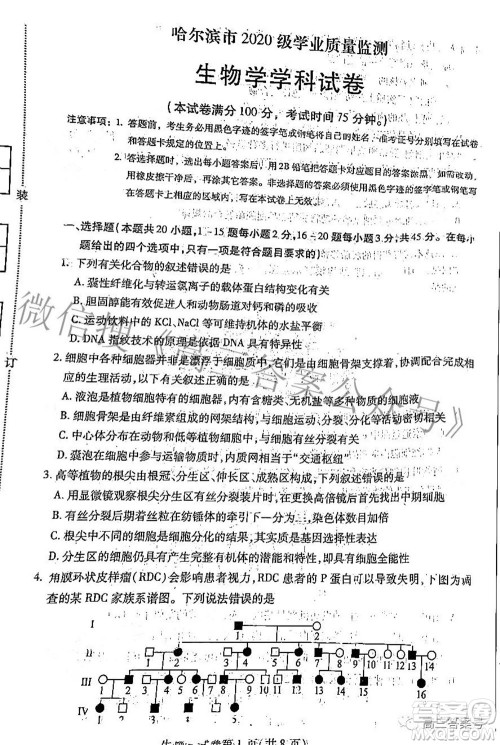 哈尔滨市 2020 级学业质量监测
生物学学科试卷
(本试卷满分 100 分，考试时间 75 分钟。)
注意事项：1. 答题前，考生务必用黑色字迹的签字笔或钢笔将自己的姓名、准考证号分别填写在试卷
和答题卡规定的位置上。
2. 答选择题时，每小题选出答案后，用 2B 铅笔把答题卡对应题目的答案标号涂黑，如需改动，
用橡皮擦干净后，再涂其它答案。非选择题的答案必须使用黑色字迹的签字笔或钢笔写
在答题卡上相应的区域内，写在本试卷上无效。
一、选择题(本题共 20 小题，1～15 题每小题 2 分，16～20 题每小题 3 分，共 45 分。在每小
题给出的四个选项中，只有一项是符合题目要求的)
1. 下列有关化合物的叙述错误的是
A. 囊性纤维化与转运氯离子的载体蛋白结构变化有关
B. 胆固醇能有效促进人和动物肠道对钙和磷的吸收
C. 运动饮料中的 KCl、NaCl 等可维持机体的水盐平衡
D. DNA 指纹技术的原理是依据 DNA 具有特异性
2. 细胞中各种细胞器并非是漂浮于细胞质中的，而是由细胞骨架支撑着，协调配合完成
相应的生理活动，以下有关叙述错误的是
A. 液泡是植物细胞特有的细胞器，内含有糖类、无机盐、色素等物质
B. 细胞骨架是由纤维素组成的网架结构，与细胞运动、分裂、分化等有关
C. 中心体分布在动物和低等植物细胞中，与细胞的有丝分裂有关
D. 囊泡在细胞中参与运输物质，被喻为“交通枢纽”
3. 高等植物的根尖由根冠、分生区、伸长区、成熟区构成，下列叙述错误的是
A. 用显微镜观察根尖的有丝分裂装片时，在更换高倍镜后首先调节细准焦螺旋
B. 有丝分裂后期有着丝粒在纺锤体的牵引下一分为二，染色体数目加倍的现象
C. 根尖中不同部位的细胞具有不同的功能，其实质是基因的选择性表达
D. 分生区的细胞仍具有产生完整有机体或分化成其他各种细胞的潜能
4. 角膜环状皮样瘤(RDC)会影响视力，RDC 患者的 P 蛋白可以导致失明，下图是被调
查的某 RDC 家族系谱图。下列说法错误的是
I
1 2
II
1 2 3 4 5 6 7 8 9 10 11 12 13 14 15 16
III
1 2 3 4 5 6 7 8 9 10 11 12 13 14
IV
1 2 3 4 5
装
订
微信搜《高三答案公众号》
高三答案号